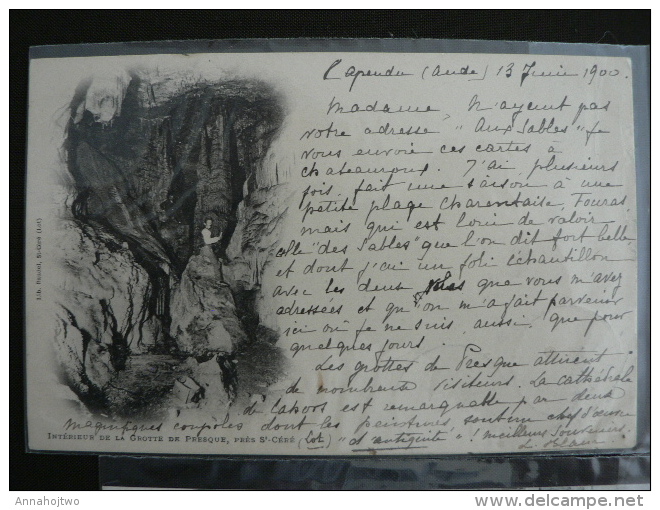 Capendu (Aude) 13 Juin 1900.
Madame, N'ayent pas
votre adresse "Aux Sables" Je
vous envoie ces cartes à
chateauroux. J'ai plusieurs
fois, fait une saison à une
petite plage charentaise, Fouras.
mais qui est loin de valoir
celle "des Sables" que l'on dit fort belle
et dont j'ai un joli échantillon
avec les deux que vous m'avez
adressées et qu'on m'a fait parvenir
ici où je ne suis, aussi, que pour
quelques jours.
Les grottes de Presque attirent
de nombreux visiteurs. La cathédrale
de Cahors est remarquable par deux
magnifiques coupoles dont les peintures sont un chef d'œuvre
"d'antiquité"! meilleurs souvenirs.
Lib. Vertuel, St-Céré (Lot)
INTÉRIEUR DE LA GROTTE DE PRESQUE, PRÈS St-CÉRÉ (Lot)
Annahojtwo
www.delcampe.net